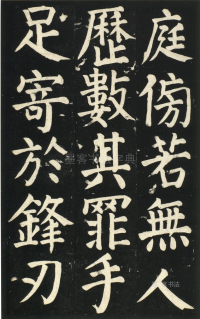 庭傍若無人
歷數其罪手
足寄於鋒刃